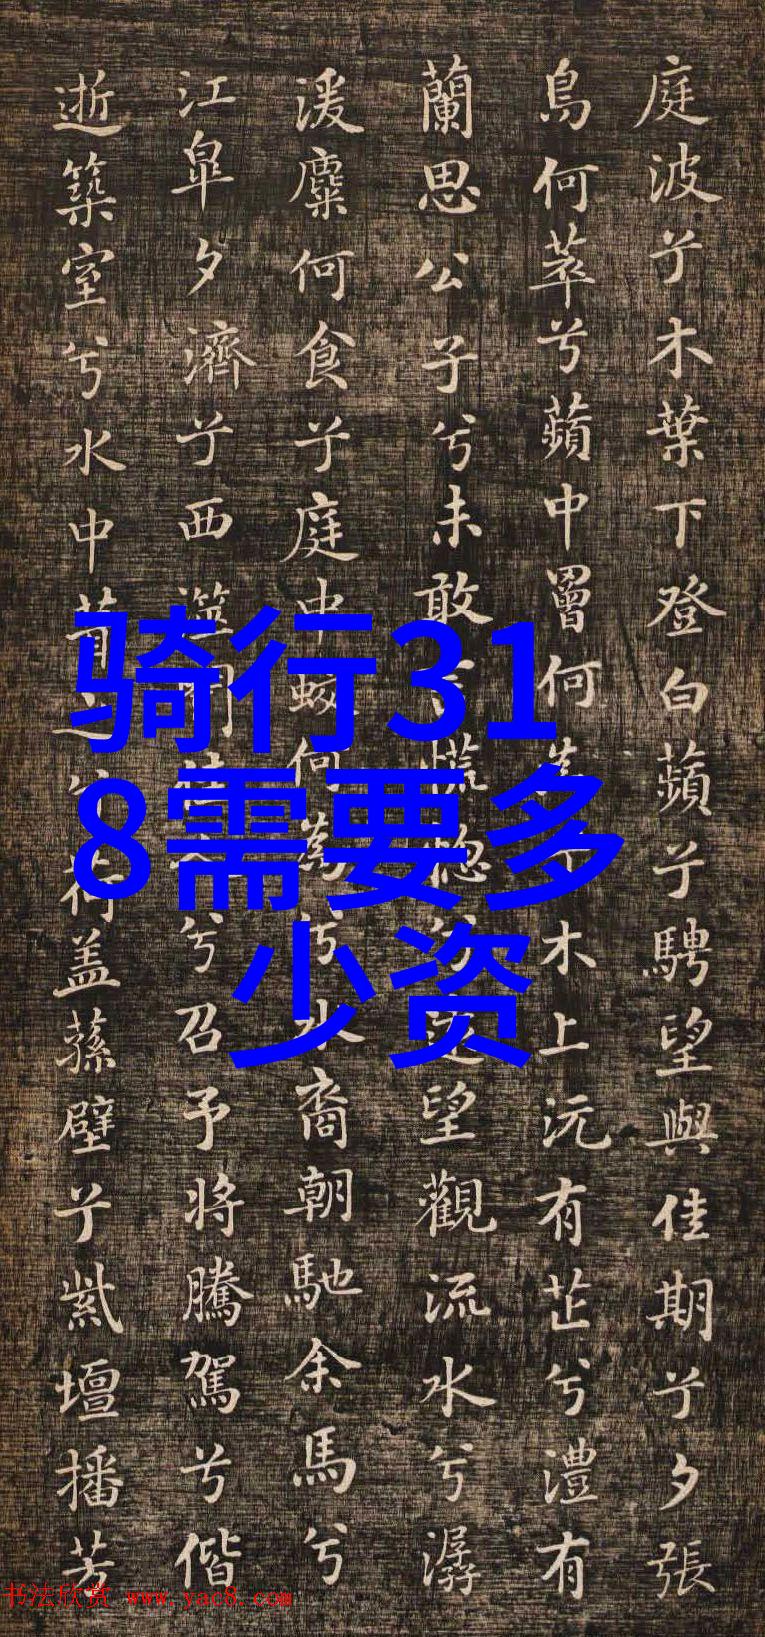 庭波兮木葉下登白蘋兮騁望與佳期兮夕張
鳥何萃兮蘋中罾何為兮木上沅有芷兮澧有
蘭思公子兮未敢言慌惚兮遠望觀流水兮潺
湲麋何食兮庭中蛟何為兮水裔朝馳余馬兮
江皋夕濟兮西澨聞佳人兮召予將騰駕兮偕
逝築室兮水中葺之兮荷盖蓀壁兮紫壇播芳
骑行31
8需要多
少资
书法欣赏 www.yac8.com